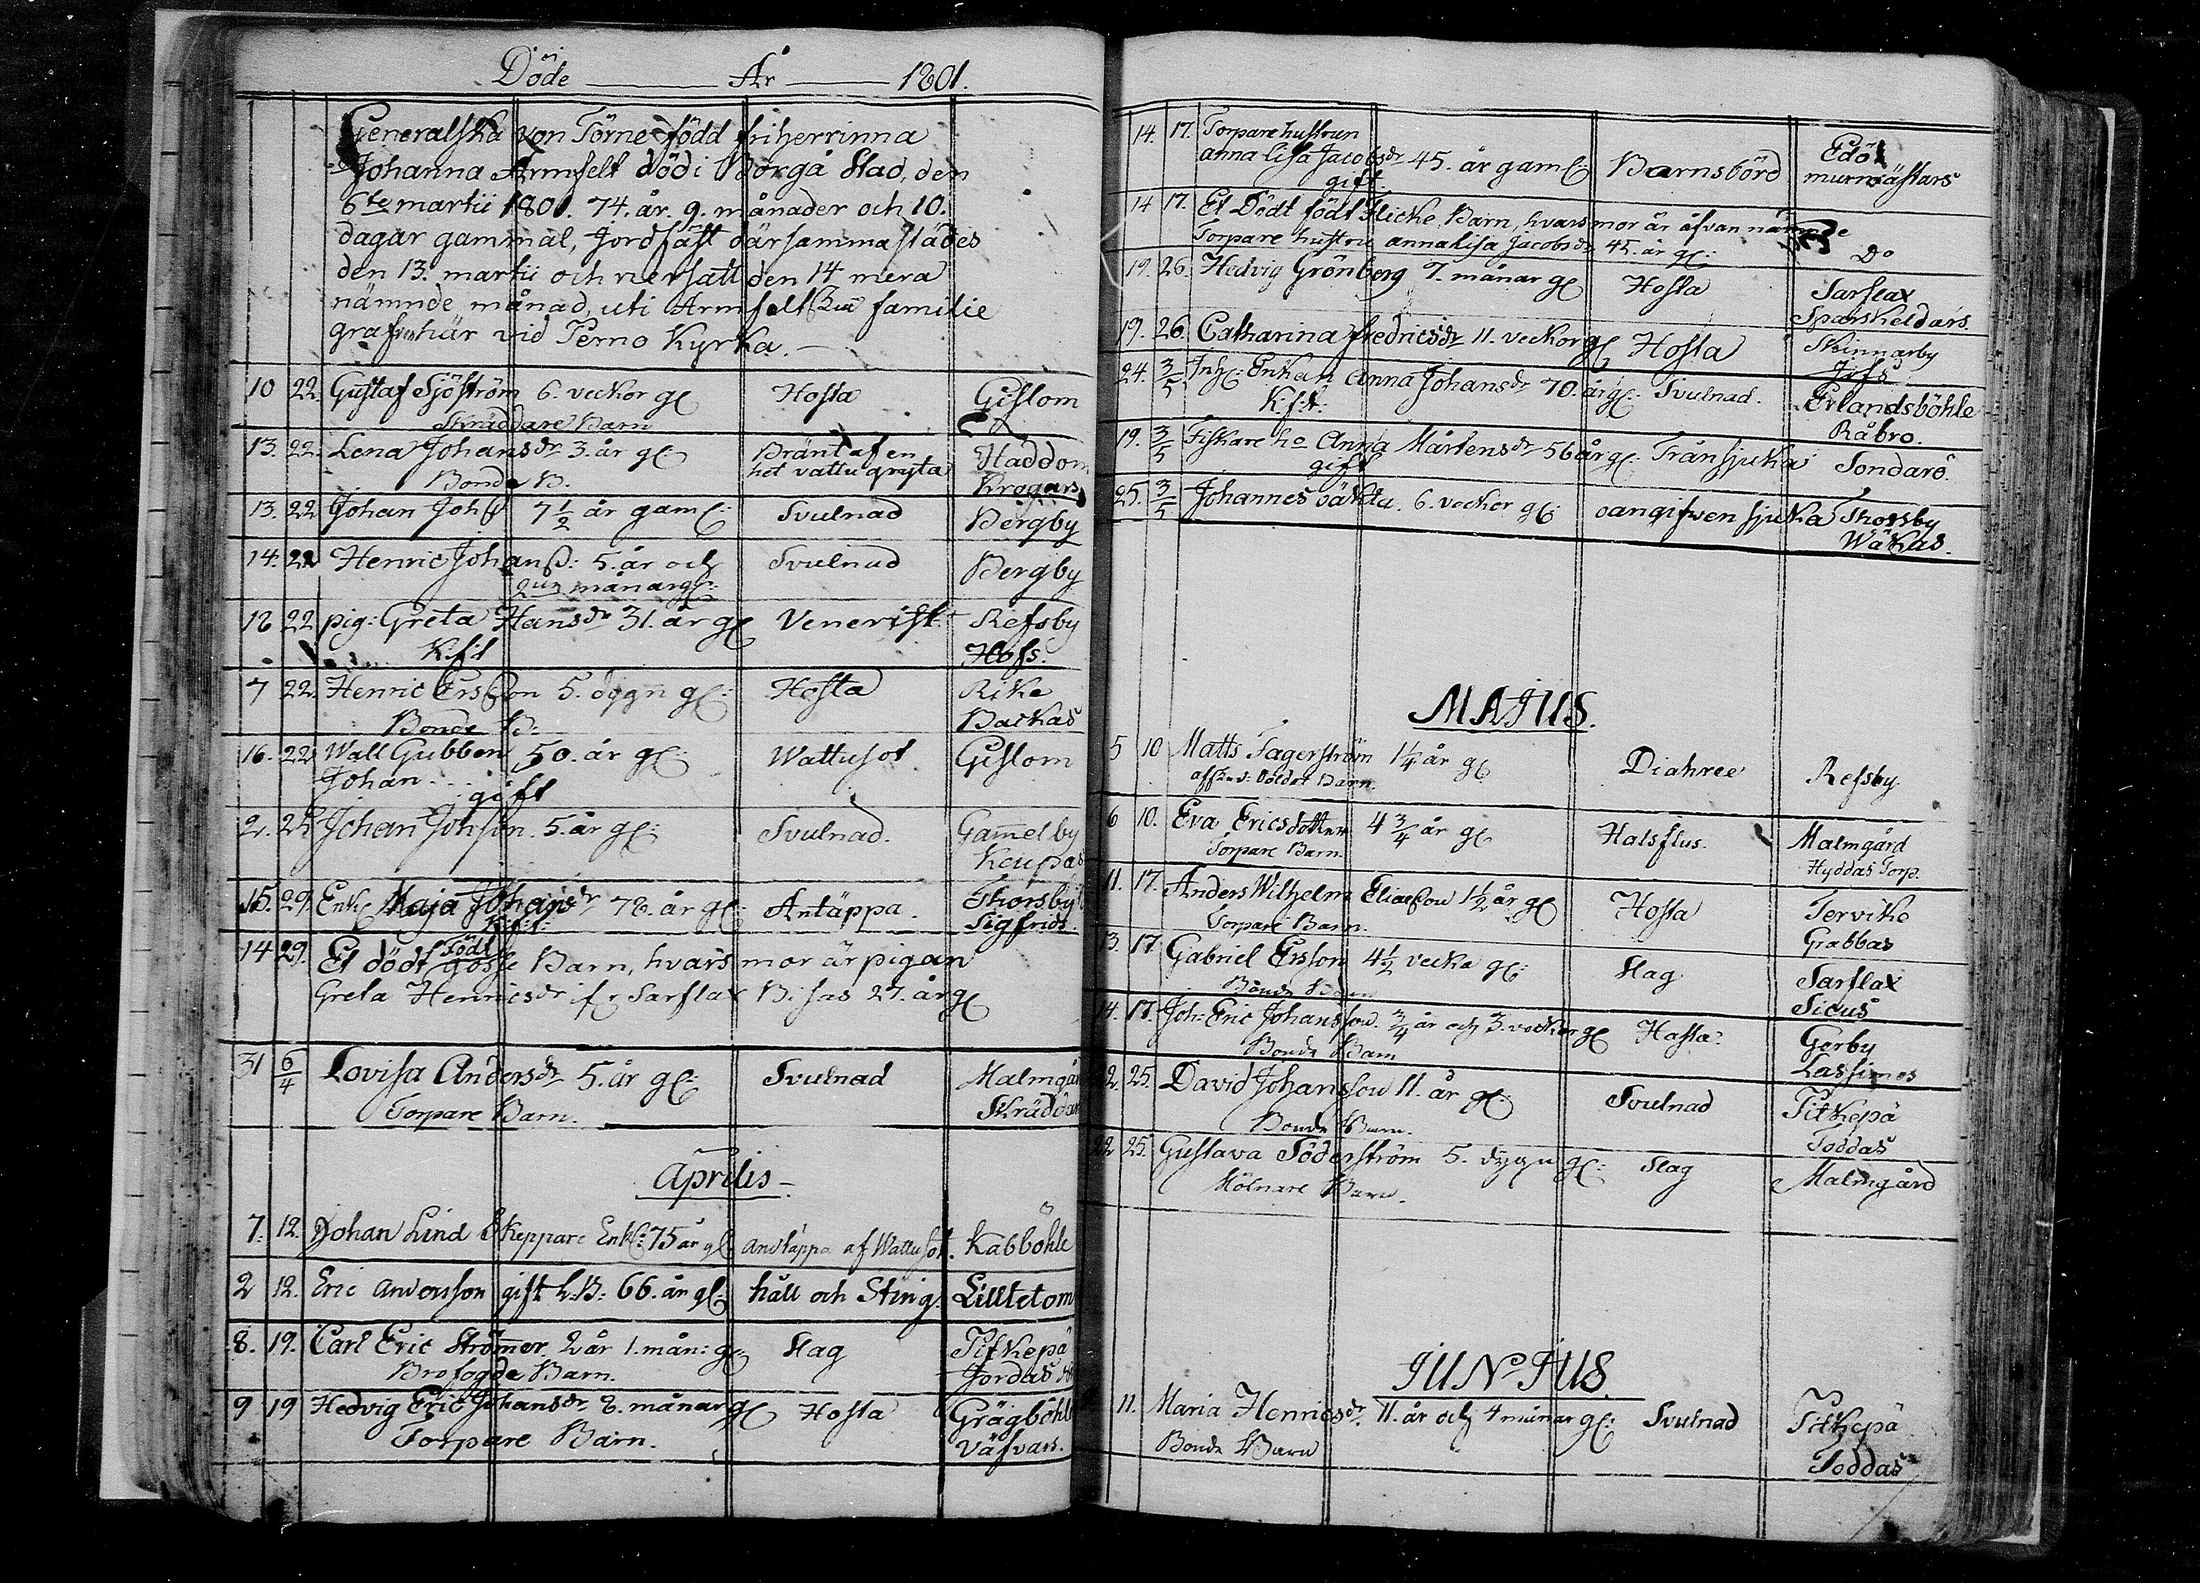 Döde År 1801.
Generalska von Törne född friherrinna
Johanna Armfelt död i Borgå Stad, den
6te martii 1801. 74. år. 9. månader och 10.
dagar gammal, Jordfäst därsammastädes
den 13. martii och nersatt den 14 mera
nämnde månad, uti Armfeltska familie
grafven här vid Perno Kyrka.
10 22. Gustaf Sjöström 6. veckor gl Hosta Gislom
Skräddare Barn
13. 22. Lena Johansdr 3. år gl Bränt af en Häddom
Bonde B. het vattu gryta Krogars
13. 22 Johan Johss 7 1/2 år gaml: Svulnad Bergby
14. 22 Henric Johanss: 5. år och Svulnad Bergby
månar gl:
18 22 pig: Greta Hansdr 31. år gl Venerisk Refsby
Hofs.
7 22. Henric Ersson 5. dygn gl: Hosta Rike
Bonde B: Backas
16. 22 Wall Gubben 50. år gl: Wattusot Gislom
Johan gift
2. 25 Johan Johsson. 5. år gl: Svulnad. Gammelby
Keupas
15. 29. Enk: Maja Johansdr 78. år gl: Antäppa. Thorsby
Sigfrids.
14 29. Et dödt födt gosse Barn, hvars mor är pigan
Greta Henricsdr ifr Sarflax Bisas 27. år gl
31 6/4 Lovisa Andersdr 5. år gl: Svulnad Malmgår
Torpare Barn. Skräddar
Aprilis
7. 12. Johan Lind Skeppare Enkl: 75 år gl andtäppa af Wattusot. Kabböhle
2 12. Eric Andersson gift 66. år gl: håll och Sting. Lilltetom
8. 19. Carl Eric Strömmer 2 år 1. mån: gl: Slag Pitkepä
Brofogde Barn. Jordas
9 19 Hedvig Eric Johansdr 8. månar gl Hosta Grägböhle
Torpare Barn. Väfvars.
14. 17. Torpare hustrun
anna Lisa Jacobsdr 45. år gaml: Barnsbörd Edö
gift. murmästars
14 17. Et Dödt födt Flicke Barn, hvars mor är åfvan nämnde
Torpare hustru anna Lisa Jacobsdr 45. år gl: Do
19. 26. Hedvig Grönberg 7. månar gl Hosta Sarflax
19. 26. Catharina fredricsdr 11. veckor gl Hosta Skinnarby
24. 3/5 Inh: Enkan Anna Johansdr 70. år gl: Svulnad. Erlandsböhle
K.f.t. Råbro.
19. 3/5 Fiskare ho Anna Mårtensdr 56 år gl: Trånsjuka Sondarö.
gift
25. 3/5 Johannes väkta. 6. veckor gl: oangifven sjuka Thorsby
Wäkas.
MAJUS.
5 10 Matts Fagerström 1 1/4 år gl Diahree Refsby.
Barn.
6 10. Eva Ericsdotter 4 3/4 år gl Halsflus. Malmgård
Torpare Barn. Hyddas Torp.
11. 17. Anders Wilhelm Eliaeson 1 1/2 år gl Hosta Tervike
Torpare Barn. Grabbas
13. 17. Gabriel Ersson 4 1/2 vecka gl: Slag Sarflax
Bonde Barn Sicus
14. 17. Joh: Eric Johansson. 3/4 år och 3. veckor gl Hosta Gerby
Bonde Barn Lassinas
22. 25. David Johansson 11. år gl: Svulnad Pitkepä
Bonde Barn. Toddas
22 25. Gustava Söderström 5. dygn gl: Slag Malmgård
Mölnare Barn.
JUNIUS.
11. Maria Henricsdr. 11. år och 4 månar gl: Svulnad Pitkepä
Bonde Barn Toddas